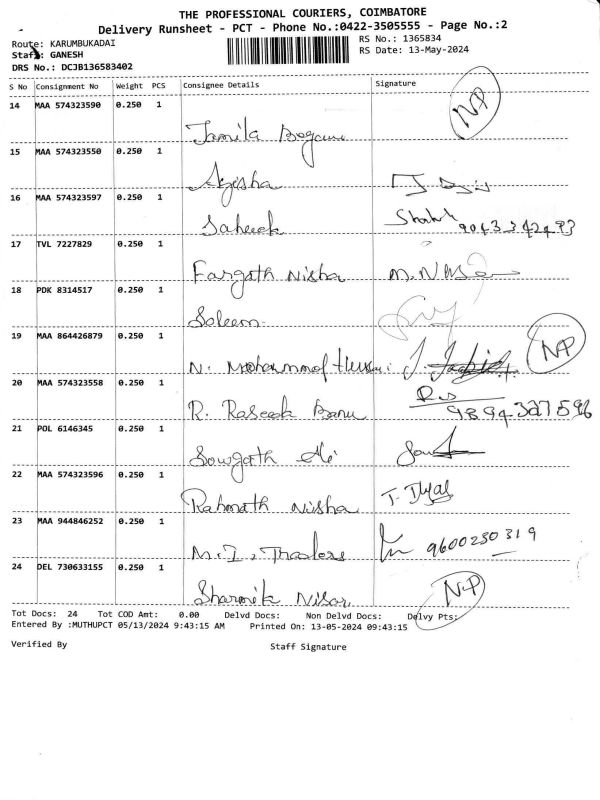 THE PROFESSIONAL COURIERS, COIMBATORE
Delivery Runsheet - PCT - Phone No.:0422-3505555 - Page No.:2
Route: KARUMBUKADAI
RS No.: 1365834
Staff: GANESH
RS Date: 13-May-2024
DRS No.: DCJB136583402
S No Consignment No Weight PCS Consignee Details Signature
14 MAA 574323590 0.250 1 NP
Jamila Begam
15 MAA 574323550 0.250 1
Ayisha
16 MAA 574323597 0.250 1
Saheek 9043342493
17 TVL 7227829 0.250 1
Fargath Nisha
18 PDK 8314517 0.250 1
Saleem
19 MAA 864426879 0.250 1 NP
N. Mohammof
20 MAA 574323558 0.250 1
R. Raseek Banu 9894327596
21 POL 6146345 0.250 1
Sowgath Ali
22 MAA 574323596 0.250 1
Rahmath Nisha
23 MAA 944846252 0.250 1
M.I. Thaders 9600230319
24 DEL 730633155 0.250 1 N.P
Sharmik Nisar
Tot Docs: 24 Tot COD Amt: 0.00 Delvd Docs: Non Delvd Docs: Delvy Pts:
Entered By :MUTHUPCT 05/13/2024 9:43:15 AM Printed On: 13-05-2024 09:43:15
Verified By Staff Signature